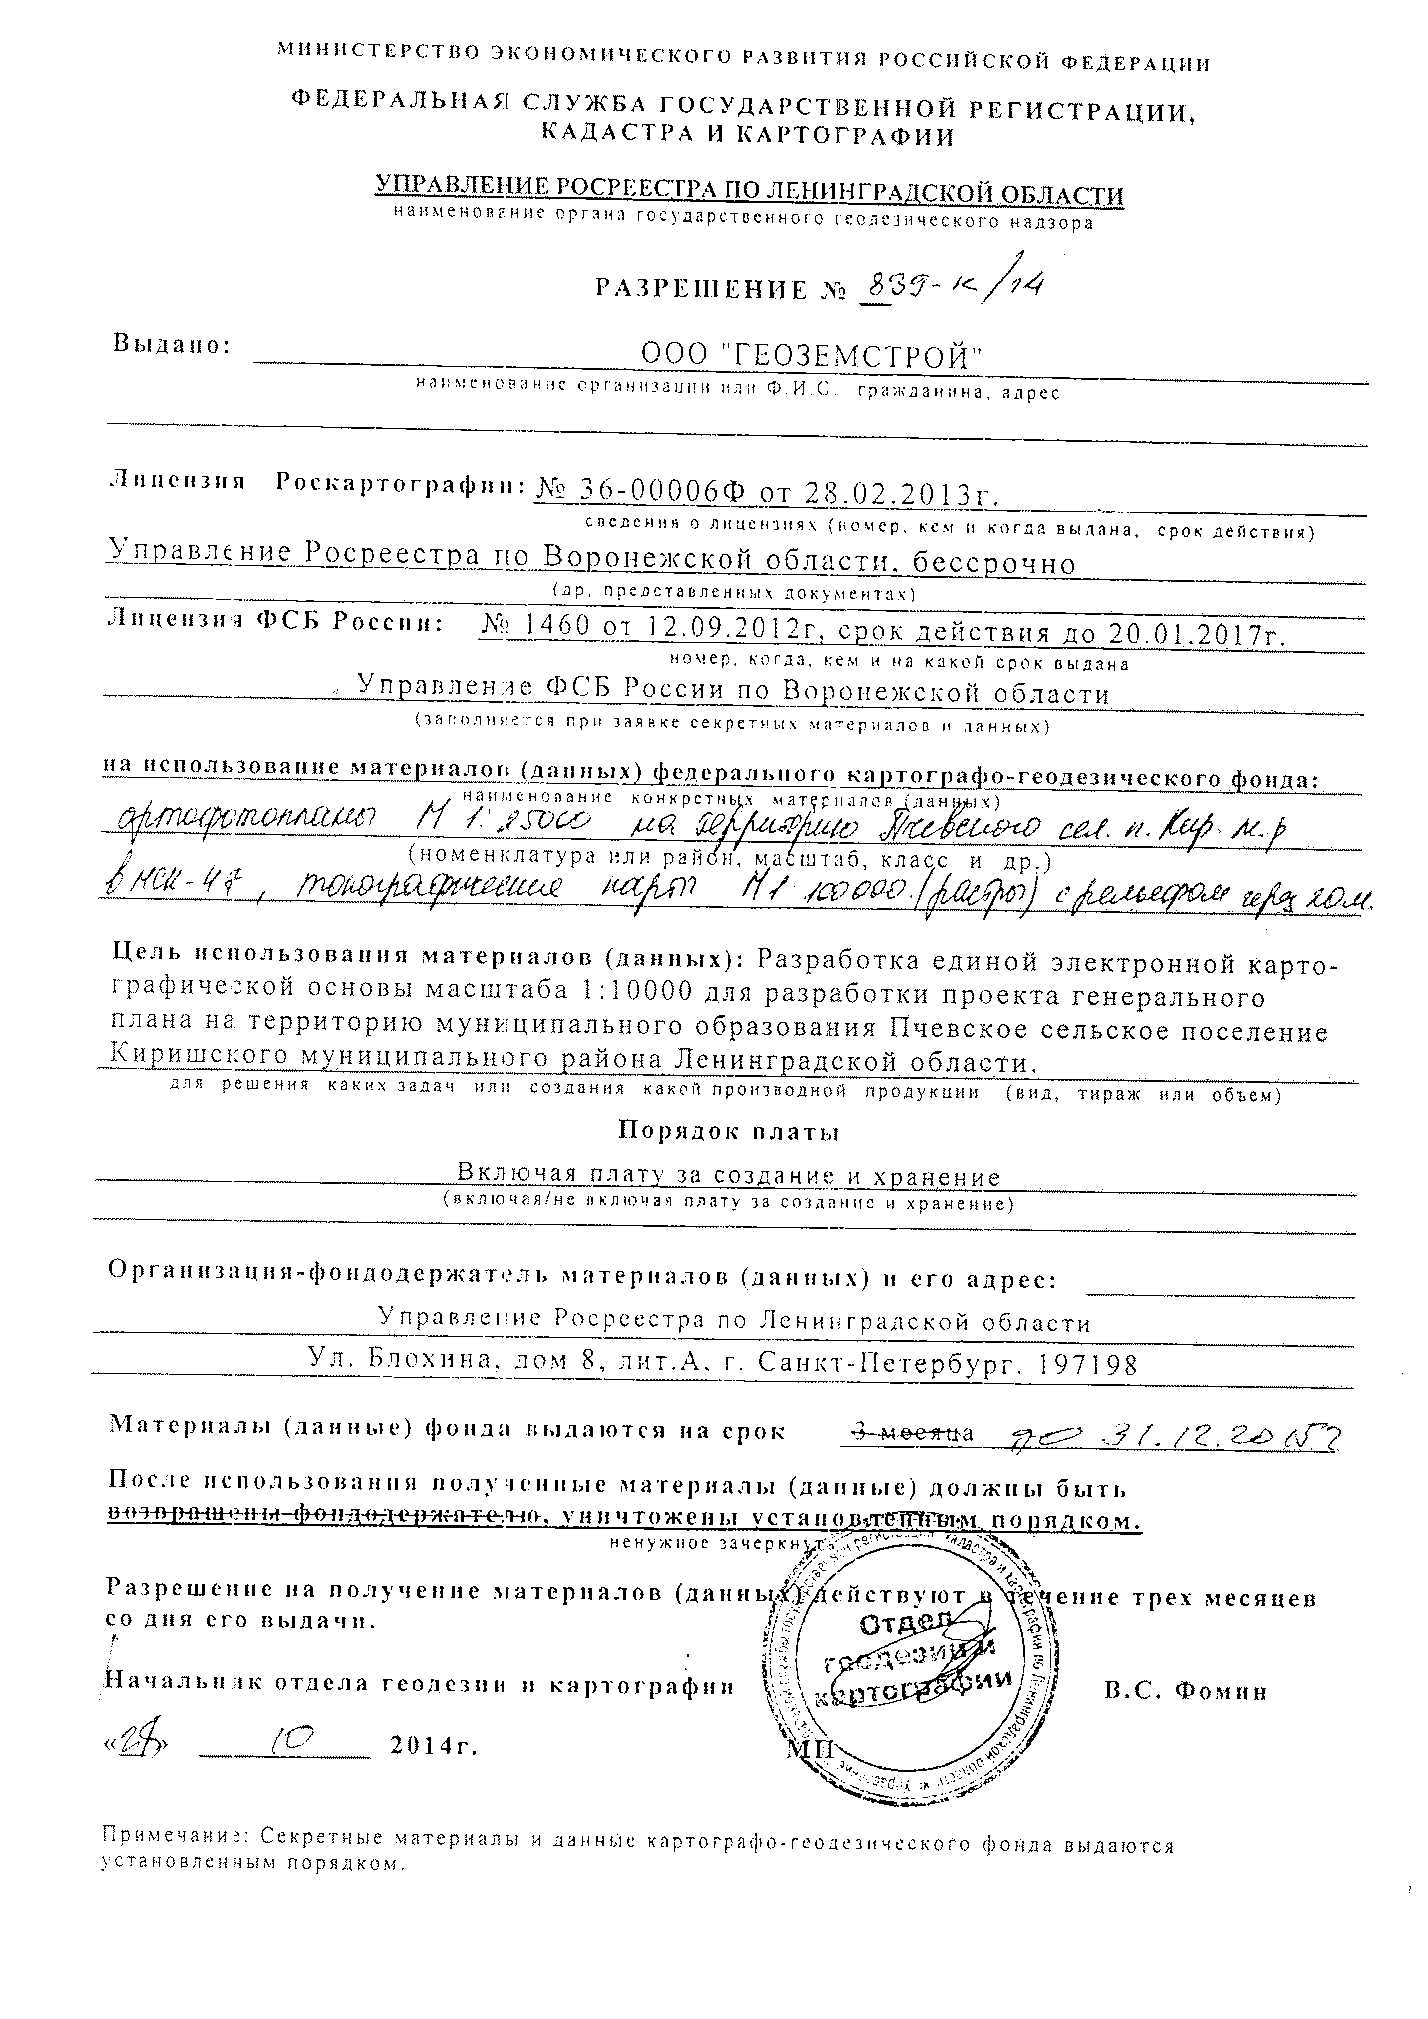 МИНИСТЕРСТВО ЭКОНОМИЧЕСКОГО РАЗВИТИЯ РОССИЙСКОЙ ФЕДЕРАЦИИ
ФЕДЕРАЛЬНАЯ СЛУЖБА ГОСУДАРСТВЕННОЙ РЕГИСТРАЦИИ,
КАДАСТРА И КАРТОГРАФИИ
УПРАВЛЕНИЕ РОСРЕЕСТРА ПО ЛЕНИНГРАДСКОЙ ОБЛАСТИ
наименование органа государственного геодезического надзора
РАЗРЕШЕНИЕ № 839-к/14
Выдано: ООО "ГЕОЗЕМСТРОЙ"
наименование организации или Ф.И.О. гражданина, адрес
Лицензия Роскартографии: № 36-00006Ф от 28.02.2013г.
сведения о лицензиях (номер, кем и когда выдана, срок действия)
Управление Росреестра по Воронежской области, бессрочно
(др. представленных документах)
Лицензия ФСБ России: № 1460 от 12.09.2012г, срок действия до 20.01.2017г.
номер, когда, кем и на какой срок выдана
Управление ФСБ России по Воронежской области
(заполняется при заявке секретных материалов и данных)
на использование материалов (данных) федерального картографо-геодезического фонда:
наименование конкретных материалов (данных)
ортофотопланы М 1:25000 на территорию Пчевского сел. п. Кир. м.р
(номенклатура или район, масштаб, класс и др.)
в МСК-47, топографические карт М1 100000 (растры) с рельефом через 20 м.
Цель использования материалов (данных): Разработка единой электронной карто-
графической основы масштаба 1:10000 для разработки проекта генерального
плана на территорию муниципального образования Пчевское сельское поселение
Киришского муниципального района Ленинградской области.
для решения каких задач или создания какой производной продукции (вид, тираж или объем)
Порядок платы
Включая плату за создание и хранение
(включая/не включая плату за создание и хранение)
Организация-фондодержатель материалов (данных) и его адрес:
Управление Росреестра по Ленинградской области
Ул. Блохина, дом 8, лит.А, г. Санкт-Петербург, 197198
Материалы (данные) фонда выдаются на срок 3 месяца до 31.12.2015г
После использования полученные материалы (данные) должны быть
возвращены фондодержателю, уничтожены установленным порядком.
ненужное зачеркнут
Разрешение на получение материалов (данных) действуют в течение трех месяцев
со дня его выдачи.
Отдел
геодезии и
картографии
Начальник отдела геодезии и картографии В.С. Фомин
МП
10 2014г.
Примечание: Секретные материалы и данные картографо-геодезического фонда выдаются
установленным порядком.